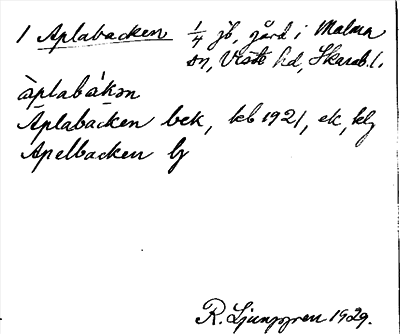 1 Aplabacken 1/4 jb, gård i Malma
sn, Viste hd, Skarab. l.
àplabákən
Aplabacken bek, kb 1921, ek, klj
Apelbacken lj
R. Ljunggren 1929.